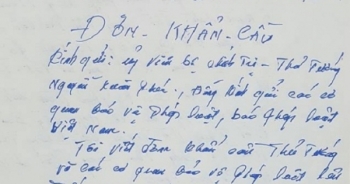 ĐƠN - KHẨN - CẦU
Kính gửi: ủy viên bộ chính trị - Thủ Tướng
Nguyễn Xuân Phúc, Đồng kính gửi các cơ
quan báo và Pháp luật, báo Pháp luật
Việt Nam.
Tôi viết đơn khẩn cầu Thủ Tướng
và các cơ quan báo và Pháp luật